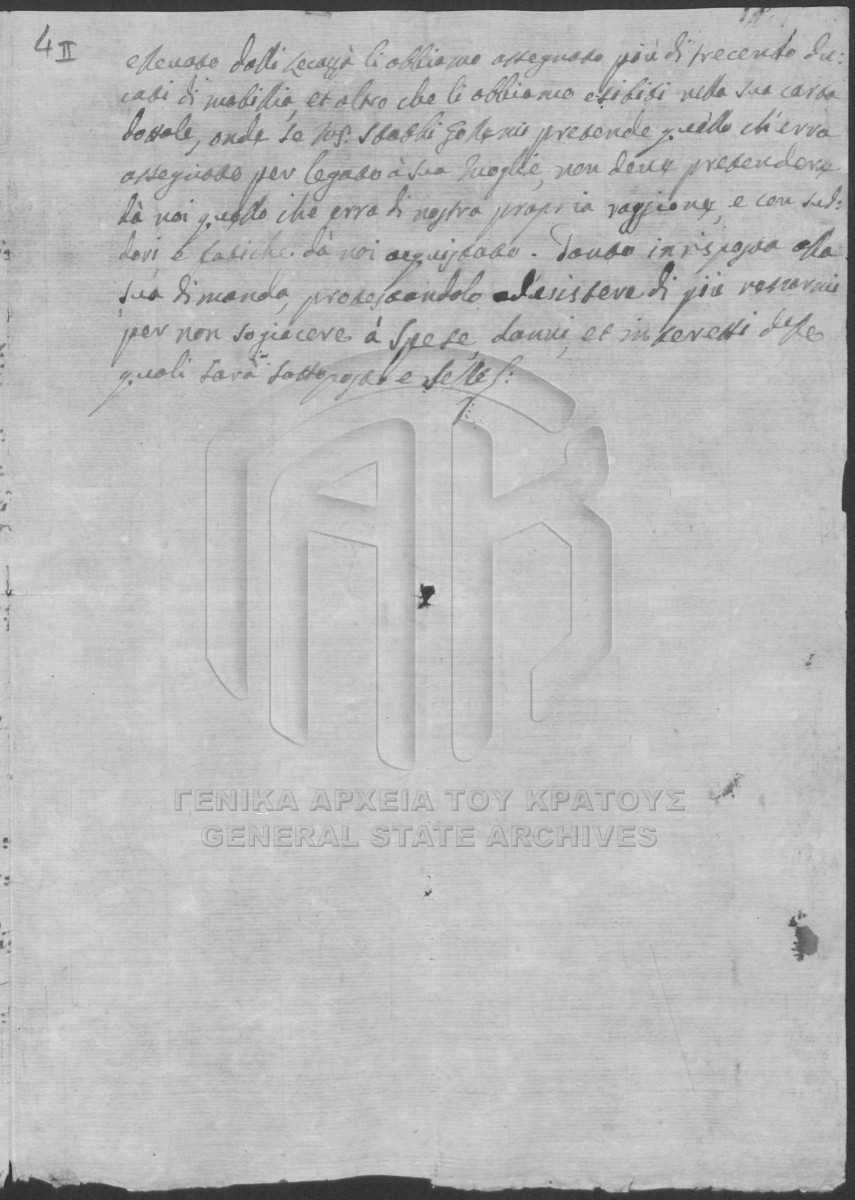 4 II
ellevato dalli Lecazzà li abbiamo assegnato più di trecento du:
cati di mobillia, et altro che li abbiamo esibiti nella sua carta
dottale, onda se Stathi pretende quello ch'erra
assegnato per legato à sua Moglie, non deve pretendere
dà noi quello che erra di nostra propria raggione, e con sud:
dori, e fatiche dà noi acquistato. Tanto in risposta alla
sua dimanda, protestandolo desistere di più
per non sogiacere à spese, danni, et interessi delle
quali sarà sottoposto e
ΓΕΝΙΚΑ ΑΡΧΕΙΑ ΤΟΥ ΚΡΑΤΟΥΣ
GENERAL STATE ARCHIVES